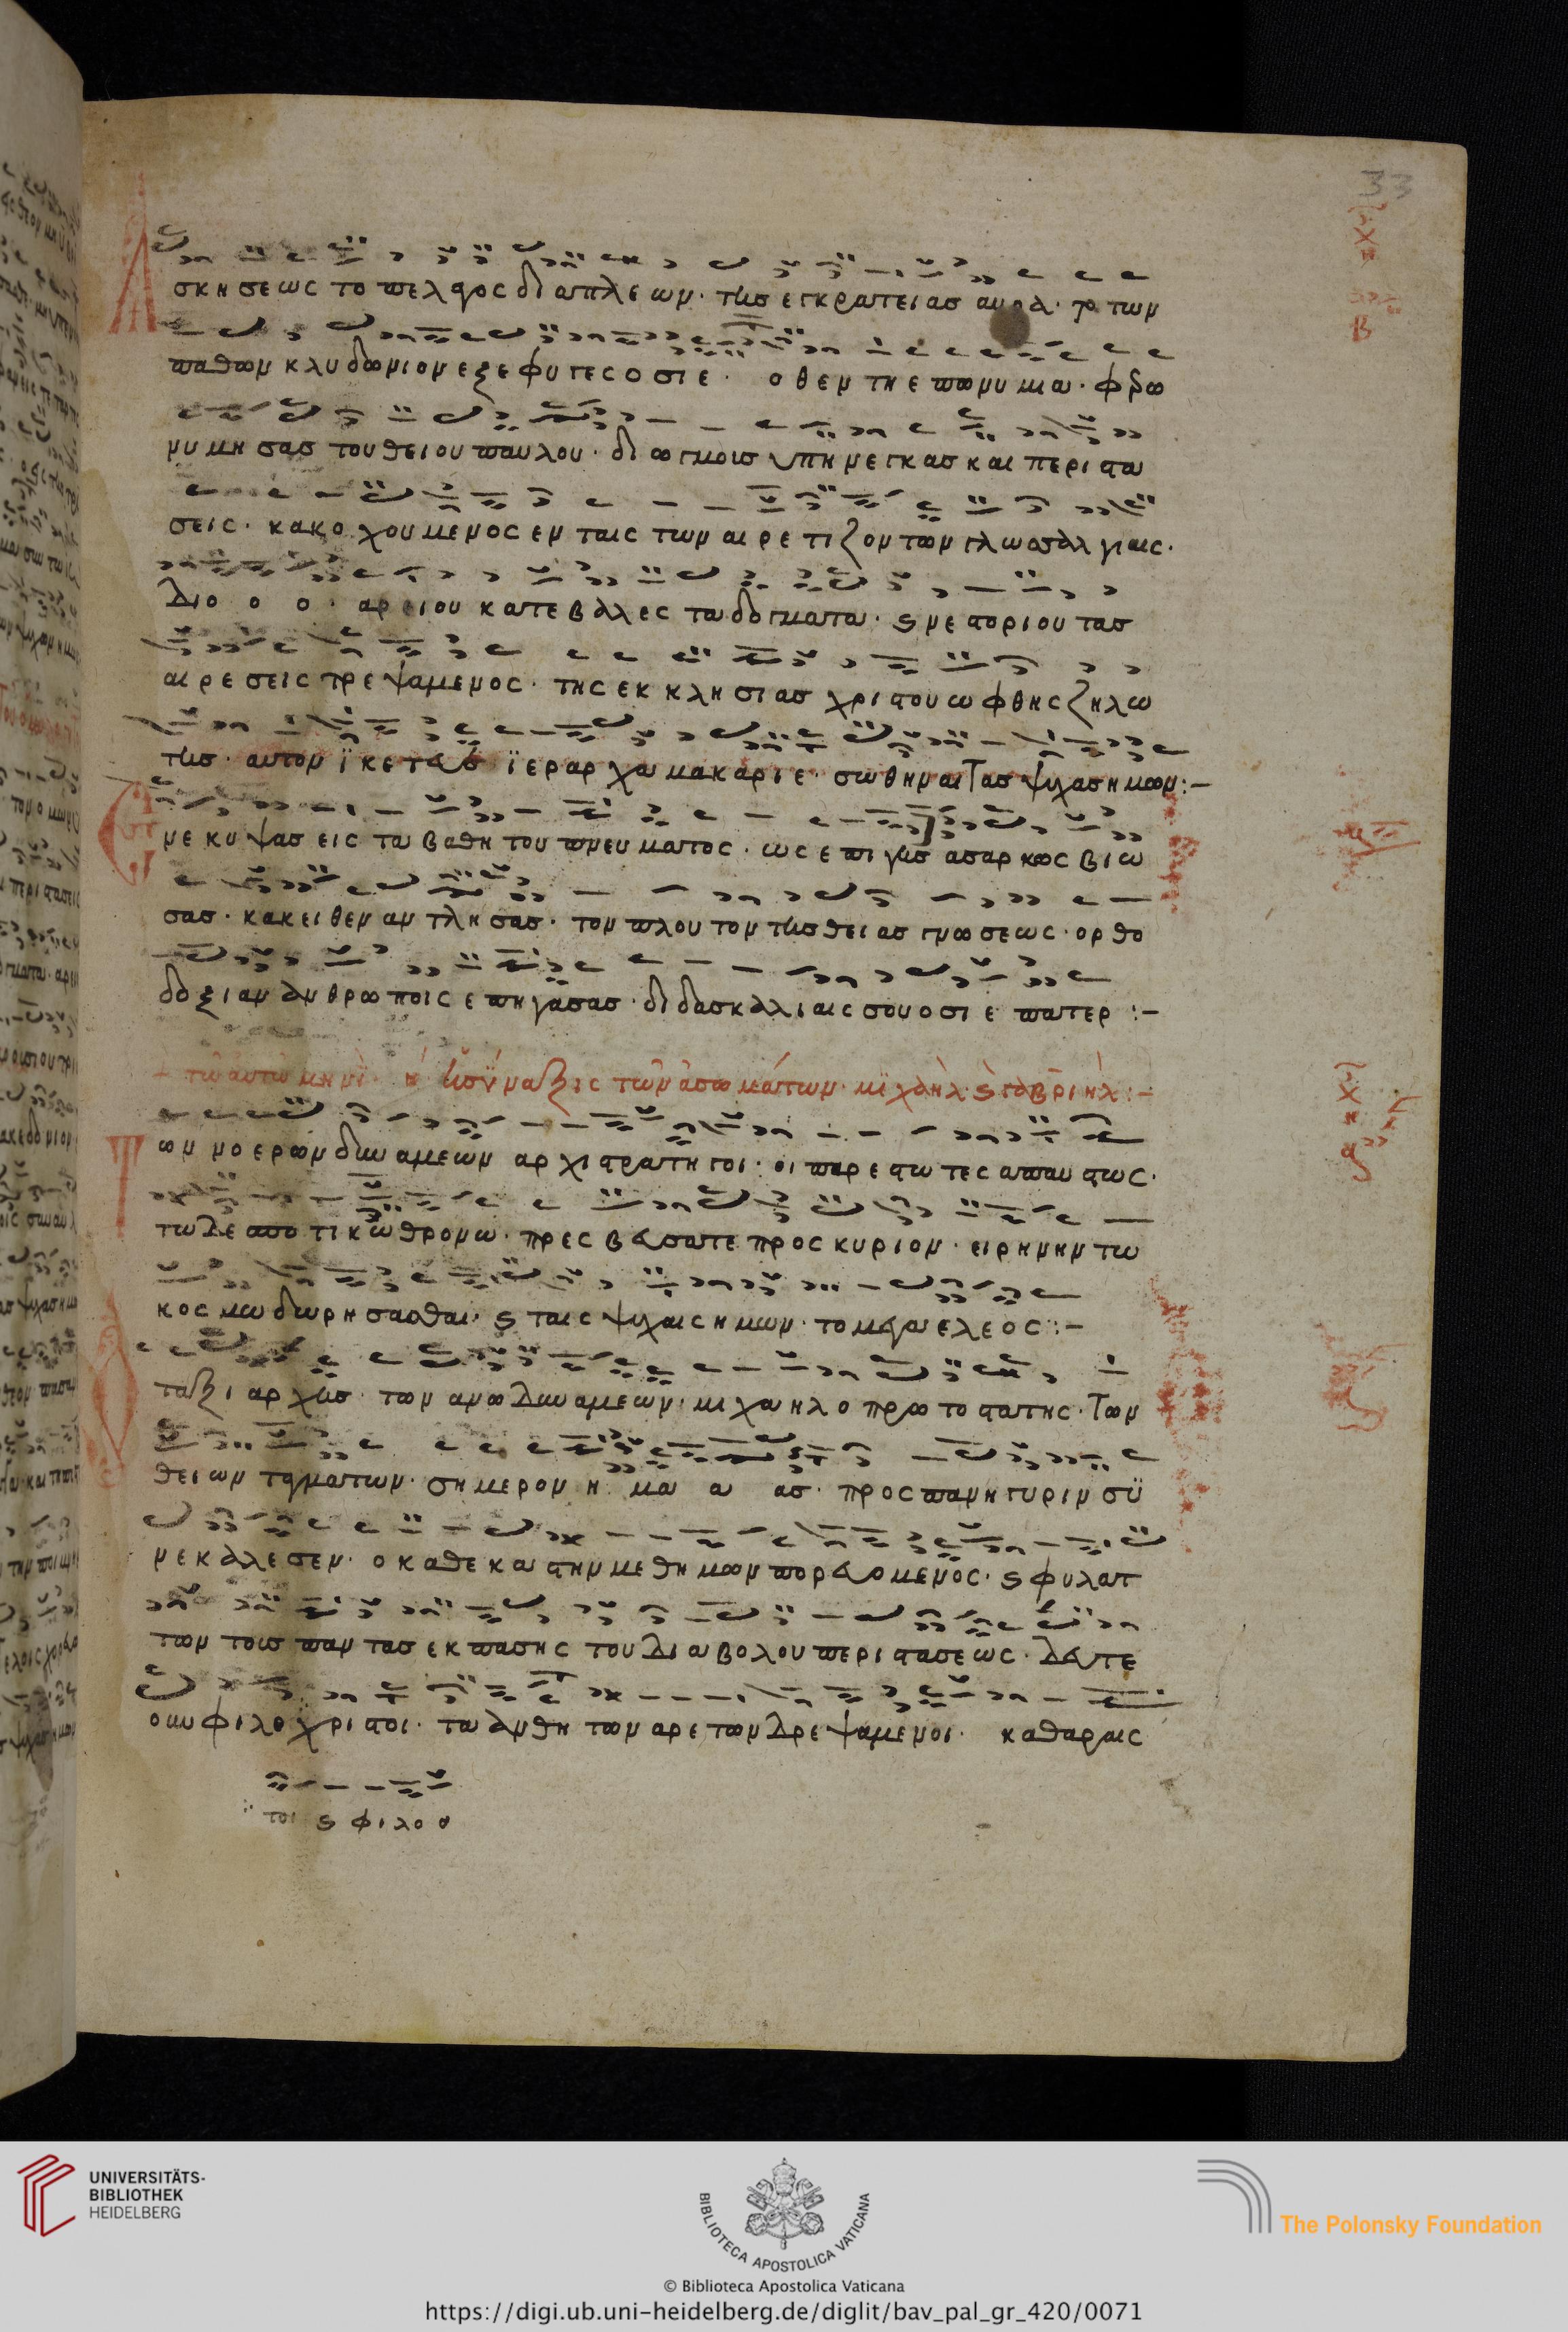 33
Ασκησεως το πελαγος διαπλεων· της εγκρατειας αυρα· τ των
παθων κλυδωνιον εξεφυγες οσιε· οθεν τη επωνυμια· φρω
νυμησας του θειου παυλου· διωγμοις υπηνεγκας και περιστα
σεις· κακοχουμενος εν ταις των αιρετιζοντων γλωσσαλγιαις·
Διο ο ο· αρειου κατεβαλες τα δογματα· ϛ νεστοριου τας
αιρεσεις τρεψαμενος· της εκκλησιας χριστου ωφθης ζηλω
της· αυτον ϊκετευε ϊεραρχα μακαριε· σωθηναι τας ψυχας ημων:–
Ενεκυψας εις τα βαθη του πνευματος· ως επι γης ασαρκως βιω
σας· κακειθεν αντλησας· τον πλουτον της θειας γνωσεως· ορθο
δοξιαν ανθρωποις επηγασας· διδασκαλιαις σου οσιε πατερ:–
+ τῶ αὐτῶ μηνὶ· η΄ ἡ σύναξις τῶν ἀσωμάτων· μιχαὴλ ϛ γαβριήλ:–
Των νοερων δυναμεων αρχιστρατηγοι· οι παρεστωτες απαυστως·
τω δεσποτικω θρονω· πρεσβευσατε προς κυριον· ειρηνην τω
κοσμω δωρησασθαι· ϛ ταις ψυχαις ημων· το μεγα ελεος:–
Ο ταξιαρχης· των ανω δυναμεων· μιχαηλ ο πρωτοστατης· των
θειων ταγματων· σημερον η μα α ας· προς πανηγυριν συ
νεκαλεσεν· ο καθεκαστην μεθημων πορευομενος· ϛ φυλατ
των τους παντας εκ πασης του διαβολου περιστασεως· δευτε
ουν φιλοχριστοι· τα ανθη των αρετων δρεψαμενοι· καθαραις
τοι ϛ φιλο ο
UNIVERSITÄTS-
BIBLIOTHEK
HEIDELBERG
BIBLIOTECA APOSTOLICA VATICANA
The Polonsky Foundation
© Biblioteca Apostolica Vaticana
https://digi.ub.uni-heidelberg.de/diglit/bav_pal_gr_420/0071